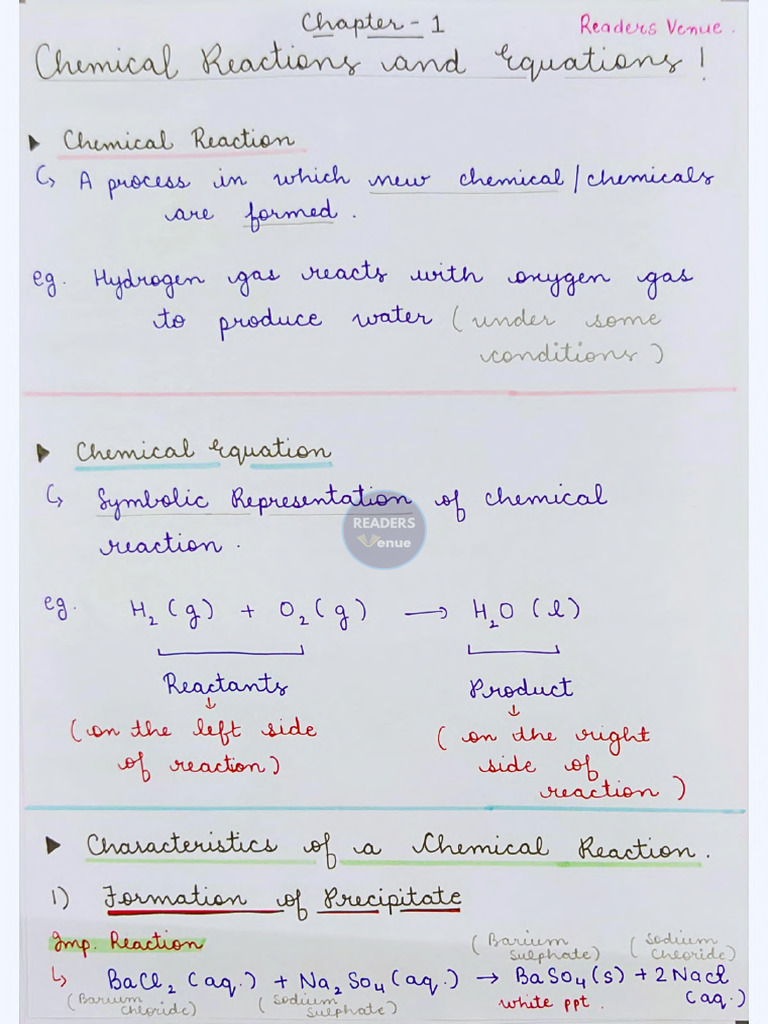 Chapter - 1
Readers Venue.
Chemical Reactions and Equations!
▶ Chemical Reaction
↳ A process in which new chemical/chemicals
are formed.
eg. Hydrogen gas reacts with oxygen gas
to produce water (under some
conditions)
▶ Chemical Equation
↳ Symbolic Representation of chemical
READERS
Venue
reaction.
eg. H₂(g) + O₂(g) → H₂O(l)
Reactants Product
↓ ↓
(on the left side (on the right
of reaction) side of
reaction)
▶ Characteristics of a Chemical Reaction.
1) Formation of Precipitate
Imp. Reaction
(Barium (Sodium
Sulphate) Chloride)
↳ BaCl₂(aq.) + Na₂SO₄(aq.) → BaSO₄(s) + 2NaCl
(Barium (Sodium white ppt. (aq.)
Chloride) Sulphate)